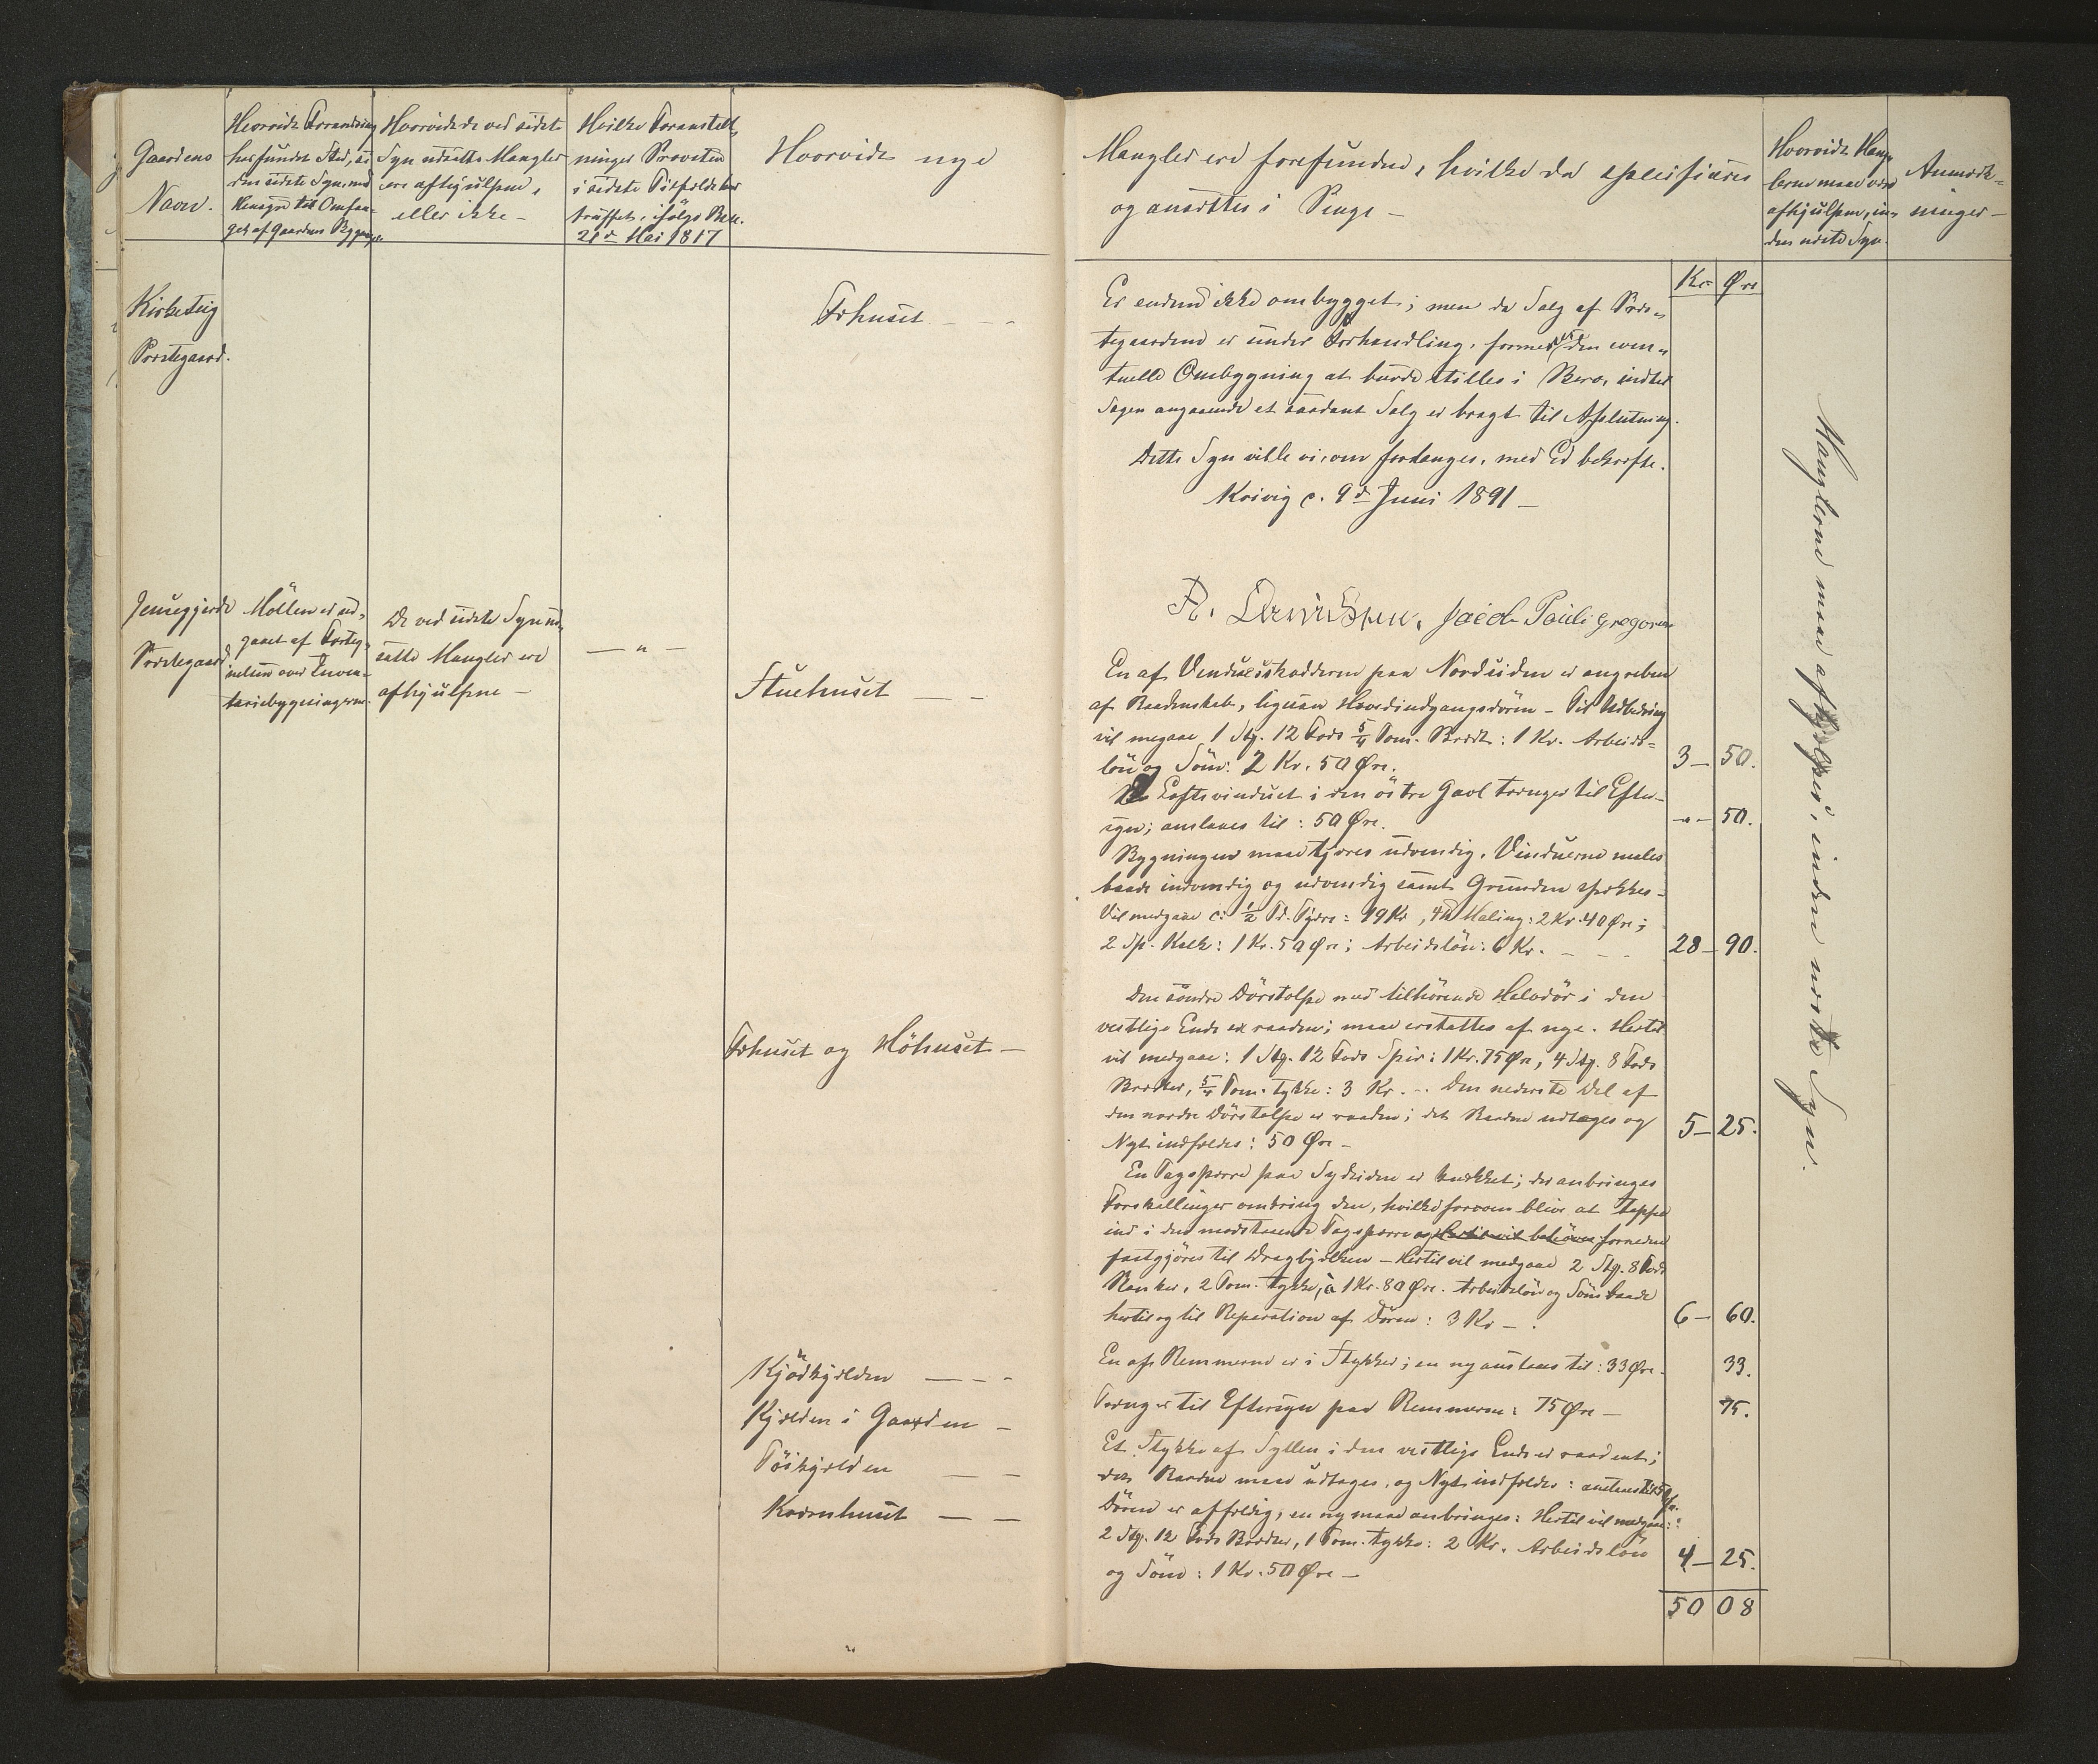 Gaardens
Navn.
Hvorvidt Forandring
har fundet Sted, si-
den sidste Syn, med
Hensyn til Omfan-
get af Gaardens Bygninger
Hvorvidt de ved sidste
Syn udsatte Mangler
ere afhjulpne,
eller ikke -
Hvilke Foranstalt-
ninger Provsten
i sidste Tilfælde har
truffet, ifölge Res.
21d Mai 1817
Hvorvidt nye
Mangler ere forefundne, hvilke da specificeres
og ansættes i Penge -
Hvorvidt Mang-
lerne maae være
afhjulpne, in-
den næste Syn.
Anmærk-
ninger -
Kr Øre
Kirketeig
Præstegaard.
Fæhuset - - -
Er endnu ikke ombygget; men da Salg af Præs-
tegaardene er under Forhandling, formenes den even-
tuelle Ombygning at burde stilles i Bero, indtil
Sagen angaaende et saadant Salg er bragt til Afslutning.
Dette Syn ville vi, om forlanges, med Ed bekræfte.
Kvivig c. 9d Juni 1891 -
Jacob Pauli Gregersen
Præstegaard
Möllen er ud-
gaaet af Forteg-
nelsen over Inven-
tariebygningerne.
De ved sidste Syn ud-
satte Mangler ere
afhjulpne -
- " -
Stuehuset - -
En af Vinduesskodderne paa Nordsiden er angreben
af Raadenskab, ligesaa Hovedindgangsdören - Til Udbedring
vil medgaae 1 Stg. 12 Fods 5/4 Tom. Brædt: 1 Kr. Arbeids-
lön og Söm: 2 Kr. 50 Øre.
3 - 50.
Loftsvinduet i den östre Gavl trænger til Efter-
syn; anslaaes til: 50 Øre.
- " - 50.
Bygningen maae tjæres udvendig, Vinduerne males
baade indvendig og udvendig samt Grunden spækkes -
Vil medgaae c: 1/2 Td. Tjære: 19 Kr, 4 ℔ Maling: 2 Kr. 40 Øre;
2 Sp. Kalk: 1 Kr. 50 Øre; Arbeidslön: 6 Kr. - - -
28 - 90.
Fæhuset og Höhuset -
Den söndre Dörstolpe med tilhörende Halvdör i den
vestlige Ende er raaden; maae erstattes af nye. Hertil
vil medgaae: 1 Stg. 12 Fods Spir: 1 Kr. 75 Øre, 4 Stg. 8 Fods
Brædder, 5/4 Tom. tykke: 3 Kr. - Den nederste Del af
den nordre Dörstolpe er raaden; det Raadne udtages og
Nyt indfældes: 50 Øre -
5 - 25.
En Tagsparre paa Sydsiden er knækket; der anbringes
Forskellinger omkring den, hvilke foroven blive at tappe
ind i den modstaaende Tagsparre og forneden
fastgjöres til Dragbjælken - Hertil vil medgaae 2 Stg. 8 Fods
Planker, 2 Tom. tykke, à 1 Kr. 80 Øre. Arbeidslön og Söm baade
hertil og til Reparation af Dören: 3 Kr - .
6 - 60.
Kjödhjelden - - -
En af Remmerne er i Stykker; en ny anslaaes til: 33 Øre -
33.
Kjelden i Gaarden -
Trænger til Eftersyn paa Remmerne: 75 Øre -
75.
Töihjelden - -
Kornhuset - -
Et Stykke af Syllen i den vestlige Ende er raadent;
det Raadne maae udtages, og Nyt indfældes: anslaaes til 75 Øre.
Dören er affældig, en ny maae anbringes: Hertil vil medgaae:
2 Stg. 12 Fods Brædder, 1 Tom. tykke: 2 Kr. Arbeidslön
og Söm: 1 Kr. 50 Øre -
4 - 25.
50 08
Manglerne maae afhjælpes, inden næste Syn.